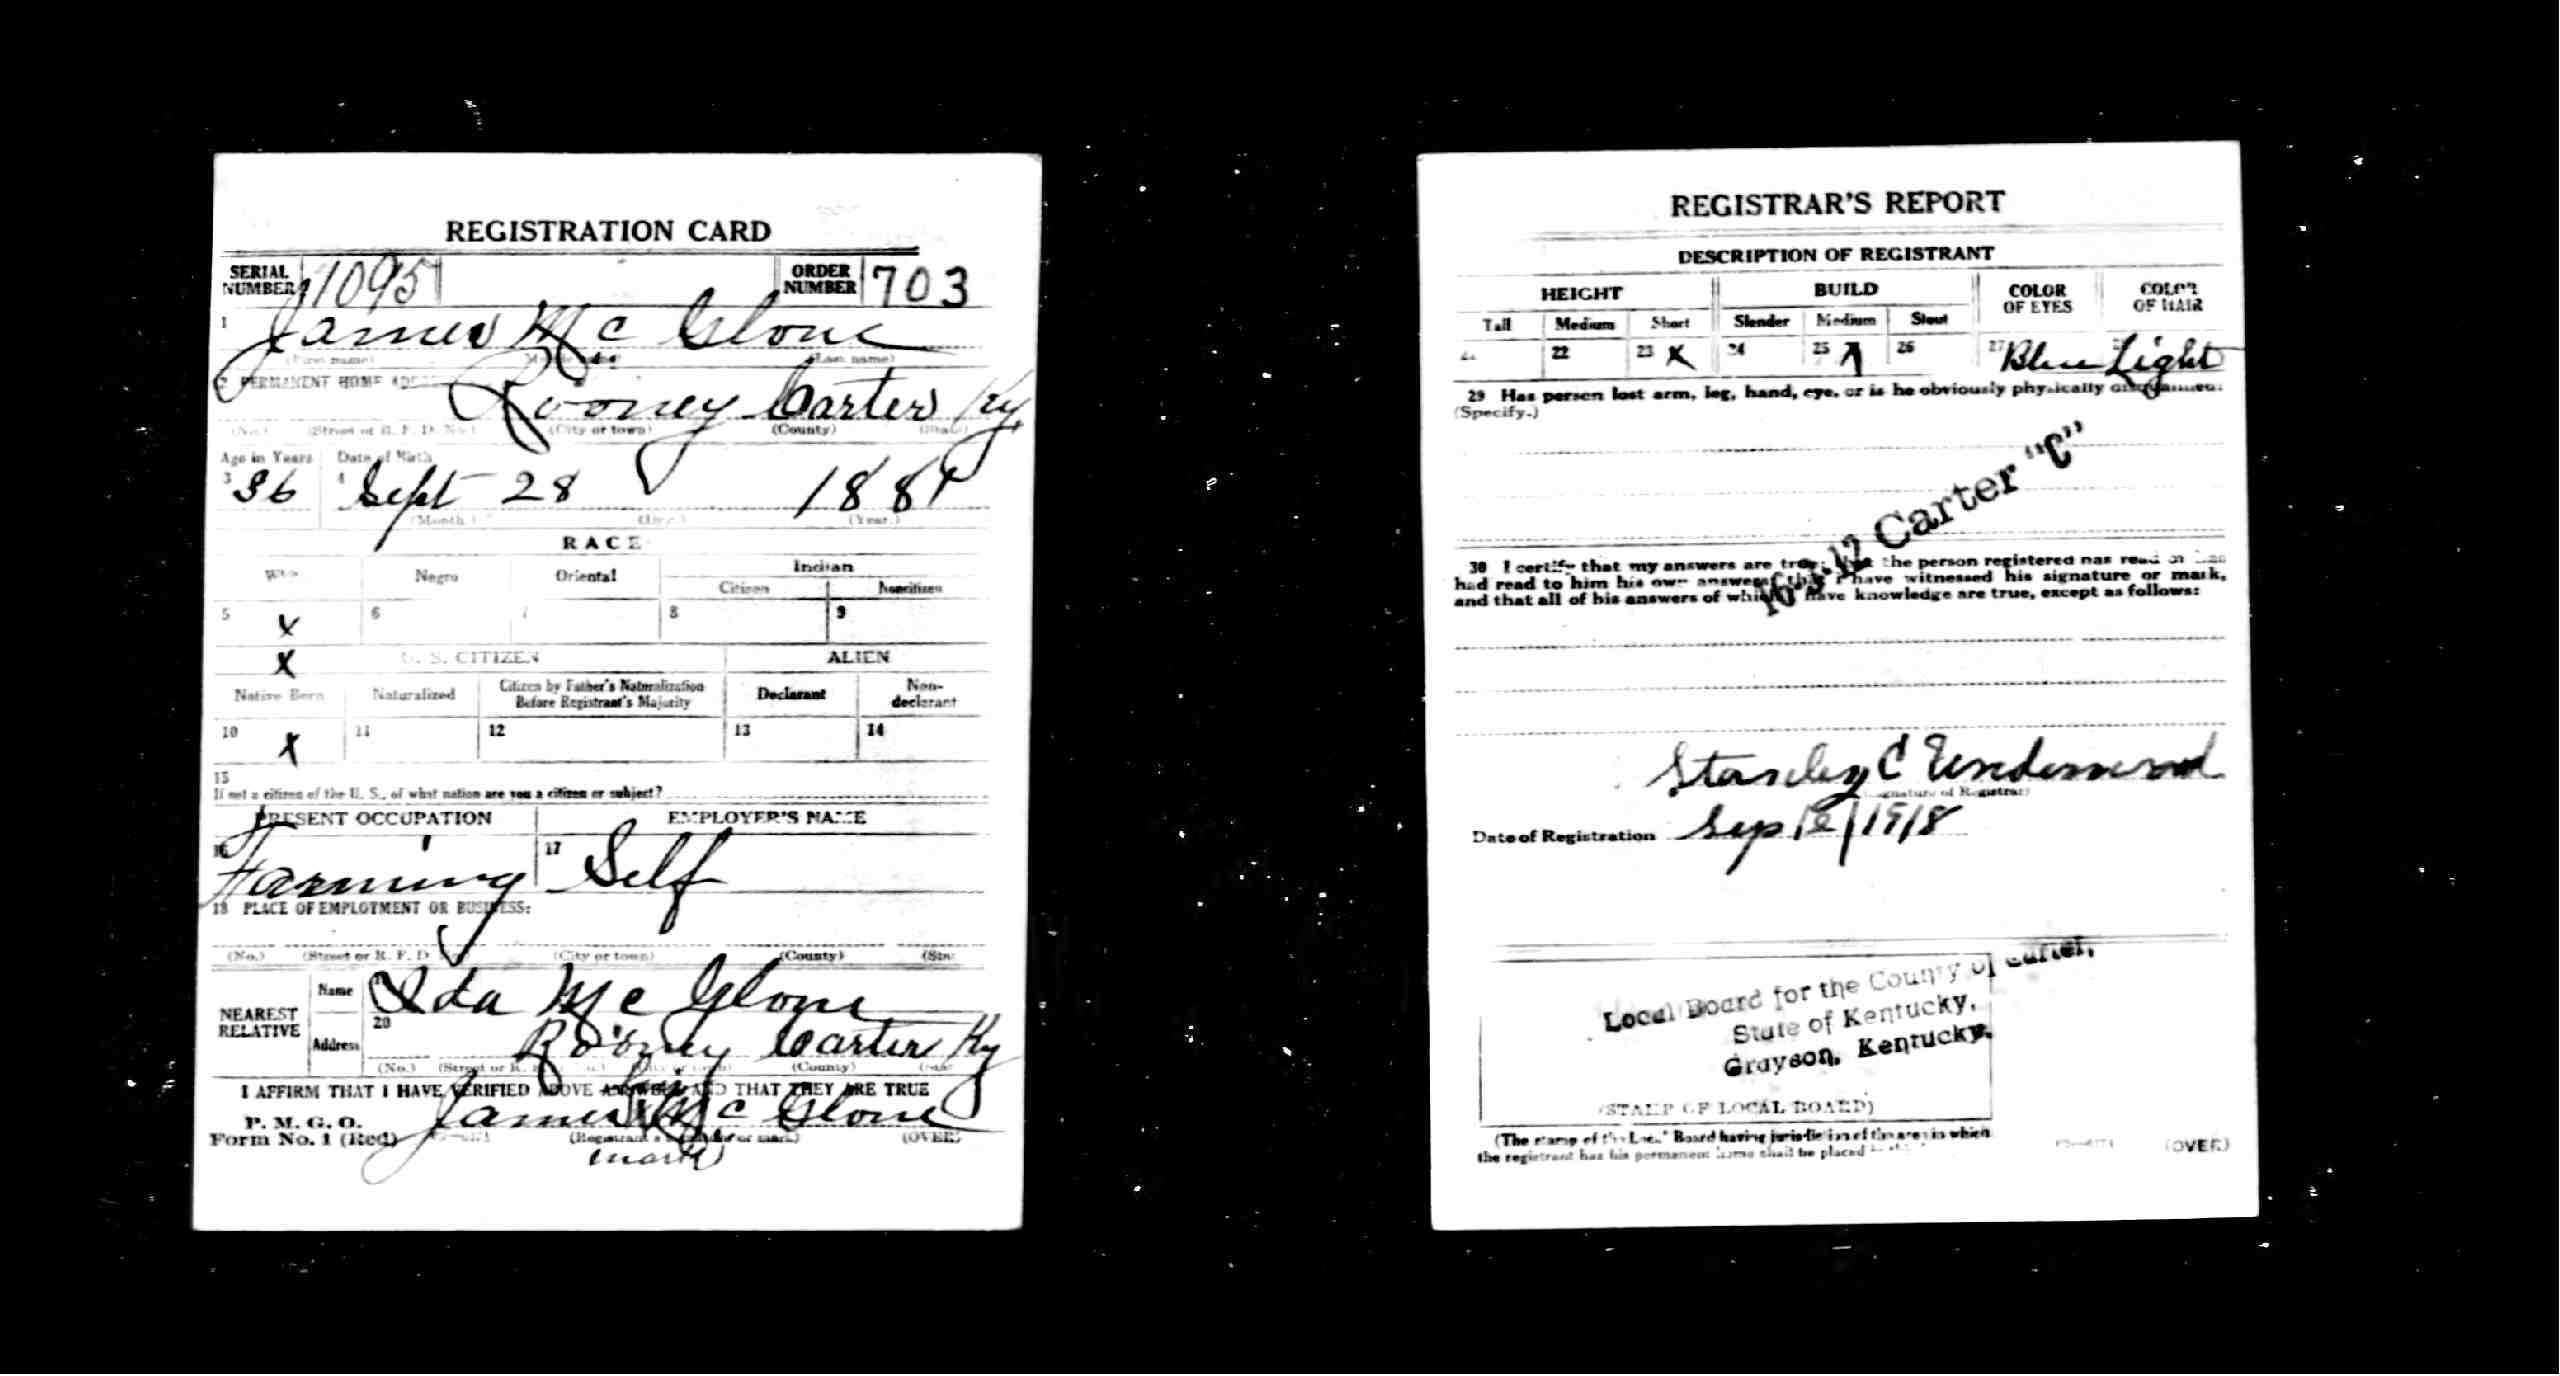 REGISTRATION CARD
SERIAL NUMBER 1095 ORDER NUMBER 703
1 James Mc Glone
(First name) (Last name)
2 PERMANENT HOME
Rooney Carter Ky
(No.) (Street or R. F. D. No.) (City or town) (County)
Age in Years Date of Birth
3 36 4 Sept 28 188
(Month.) (Day.) (Year.)
RACE
Negro Oriental Indian
Citizen Noncitizen
5 X 6 7 8 9
X U. S. CITIZEN ALIEN
Native Born Naturalized Citizen by Father's Naturalization Before Registrant's Majority Declarant Non-declarant
10 X 11 12 13 14
15
If not a citizen of the U. S., of what nation are you a citizen or subject?
PRESENT OCCUPATION EMPLOYER'S NAME
16 Farming 17 Self
18 PLACE OF EMPLOYMENT OR BUSINESS:
(No.) (Street or R. F. D (City or town) (County)
NEAREST RELATIVE Name Ida Mc Glone
Address 20 Rooney Carter Ky
(No.) (County)
I AFFIRM THAT I HAVE VERIFIED ABOVE ANSWERS AND THAT THEY ARE TRUE
P. M. G. O.
Form No. 1 (Red) James his Mc Glone
(Registrant's or mark) (OVER)
mark
REGISTRAR'S REPORT
DESCRIPTION OF REGISTRANT
HEIGHT BUILD COLOR OF EYES COLOR OF HAIR
Tall Medium Short Slender Medium Stout
22 23 X 24 25 X 26 27 Blue Light
29 Has person lost arm, leg, hand, eye, or is he obviously physically
(Specify.)
Carter "C"
30 I certify that my answers are true; that the person registered has read or has
had read to him his own answers; that I have witnessed his signature or mark,
and that all of his answers of which I have knowledge are true, except as follows:
Stanley C Underwood
(Signature of Registrar)
Date of Registration Sep 12/1918
Local Board for the County of Carter,
State of Kentucky,
Grayson, Kentucky.
(STAMP OF LOCAL BOARD)
(The stamp of the Local Board having jurisdiction of the area in which
the registrant has his permanent home shall be placed
(OVER)